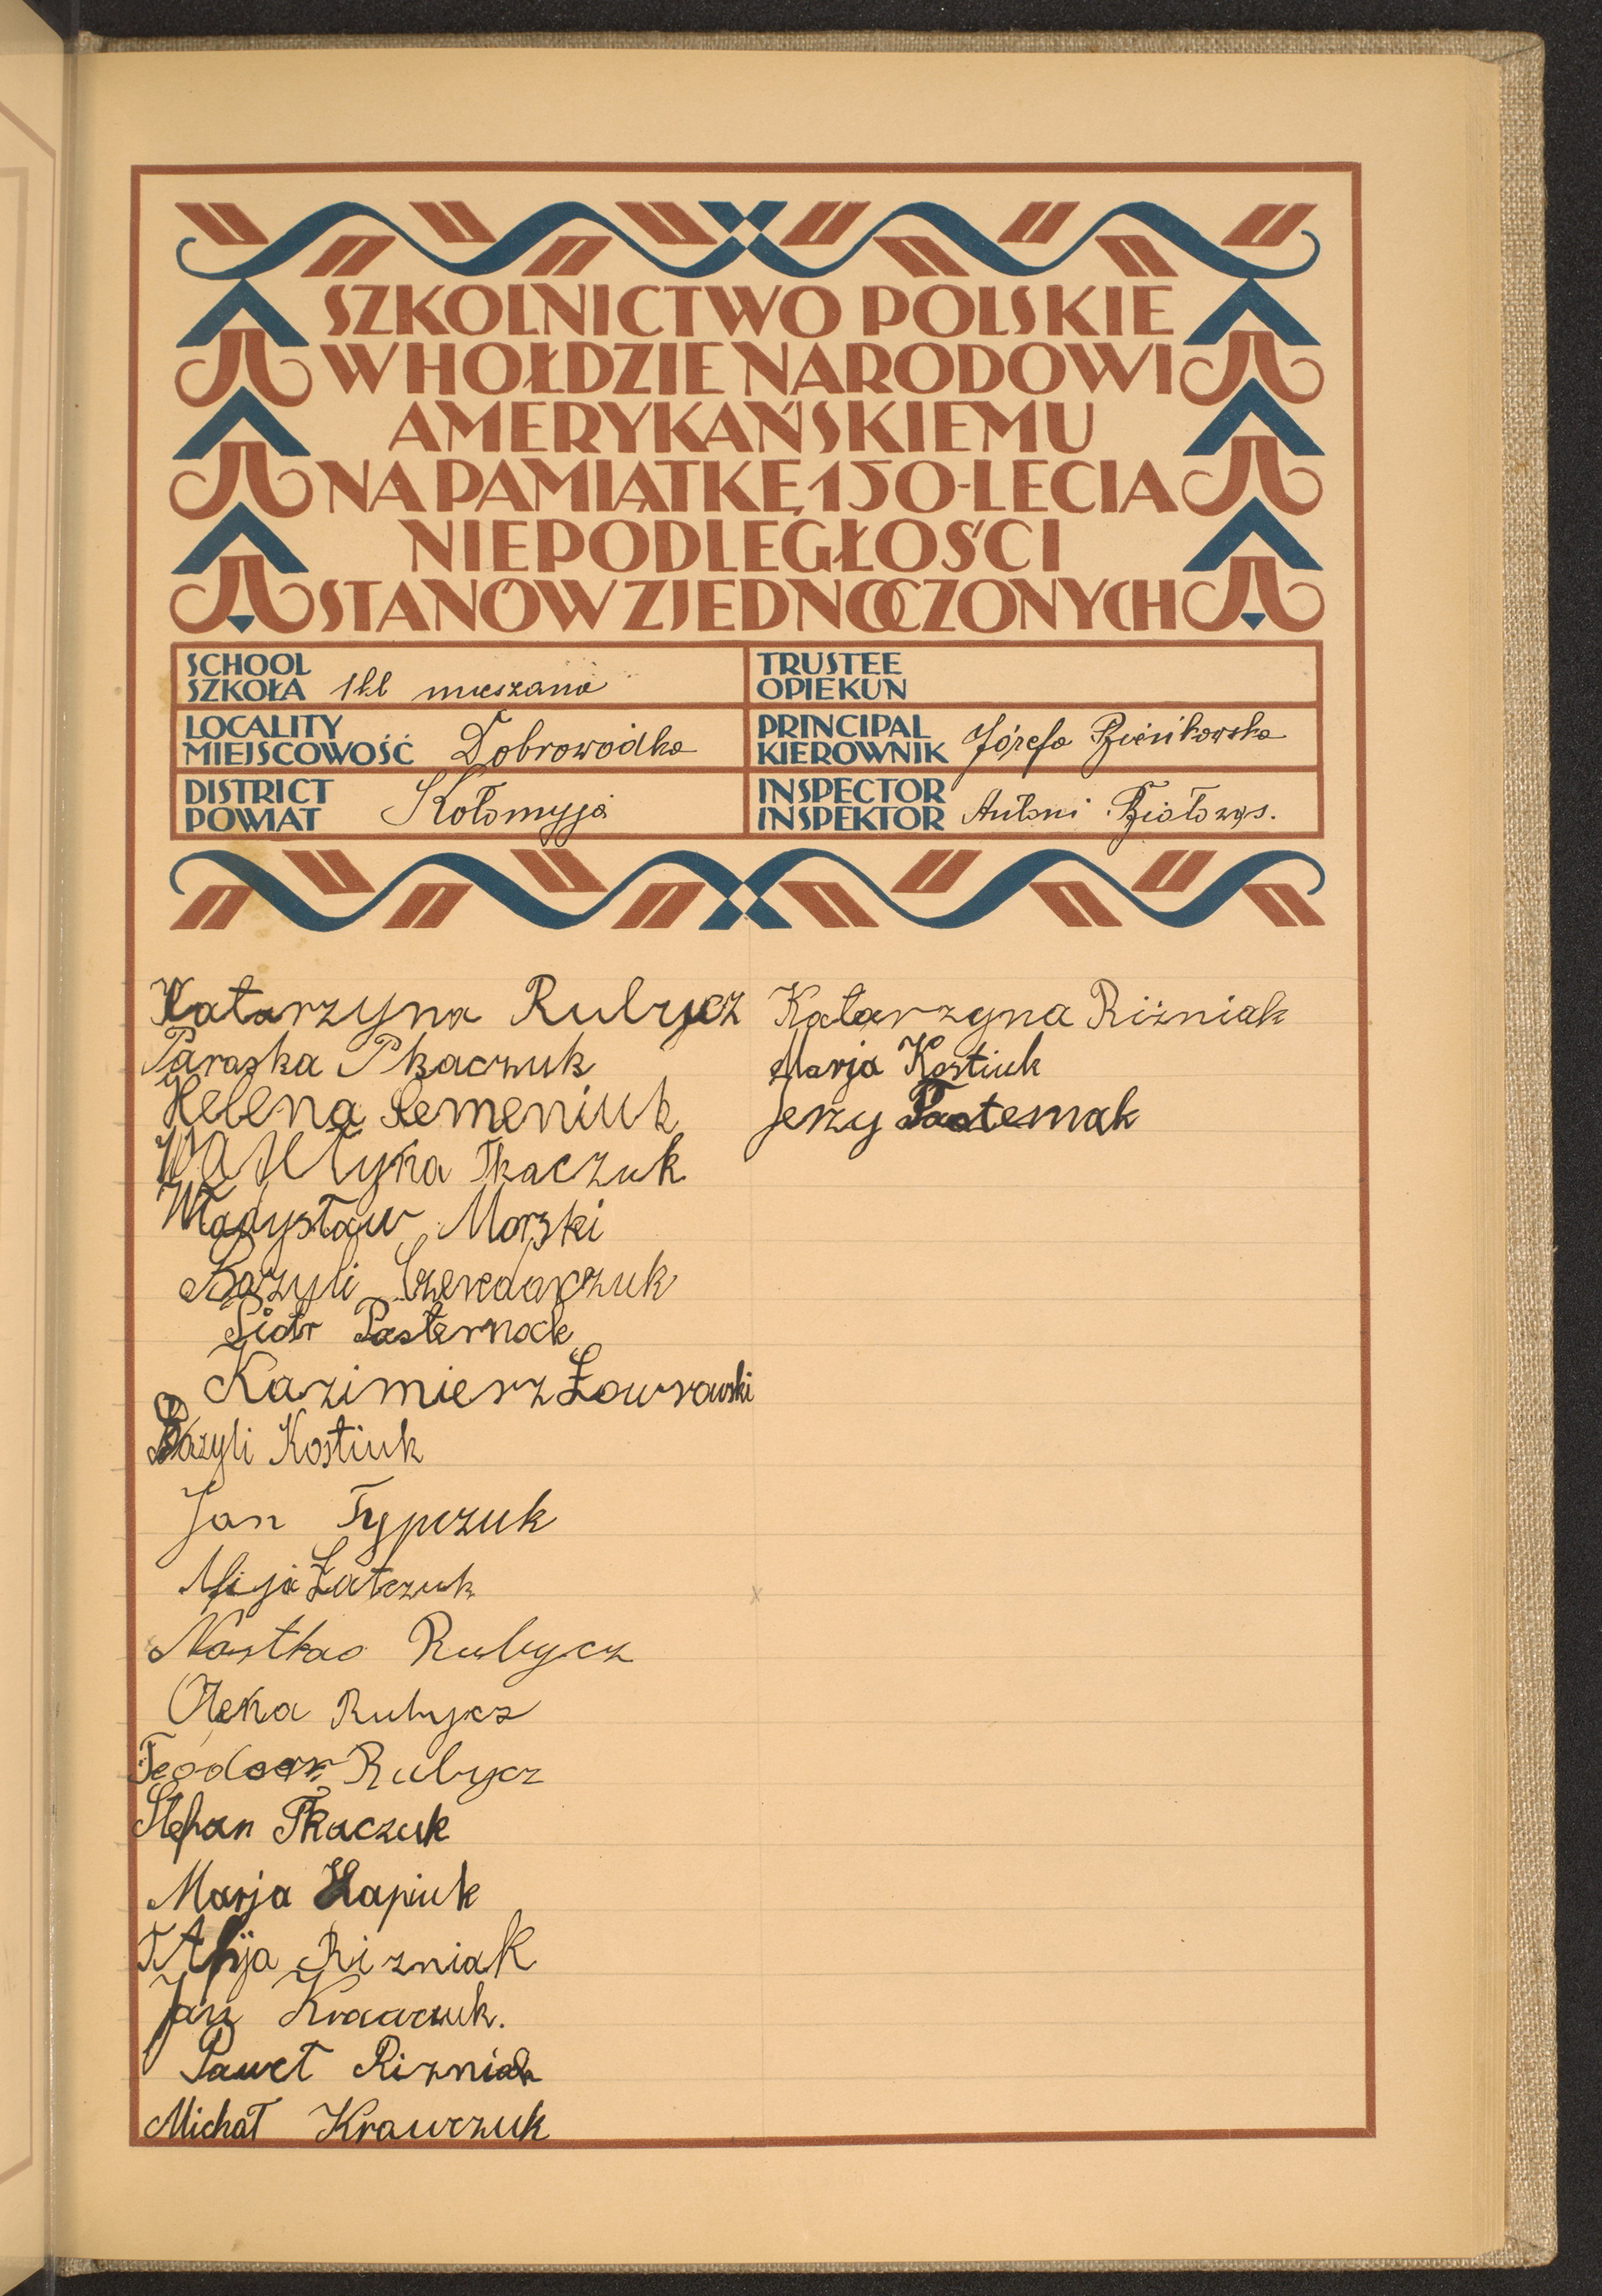 SZKOLNICTWO POLSKIE
W HOŁDZIE NARODOWI
AMERYKAŃSKIEMU
NA PAMIĄTKĘ 150-LECIA
NIEPODLEGŁOŚCI
STANÓW ZJEDNOCZONYCH
SCHOOL
SZKOŁA 1kl mieszana
TRUSTEE
OPIEKUN
LOCALITY
MIEJSCOWOŚĆ Dobrowódka
PRINCIPAL
KIEROWNIK Józefa
DISTRICT
POWIAT Kołomyja
INSPECTOR
INSPEKTOR Antoni
Katarzyna Rubycz
Paraska Tkaczuk
Helena Semeniuk
Wasyłyna Tkaczuk
Władysław Morski
Bazyli
Piotr Pasternack
Kazimierz
Bazyli Kostiuk
Jan Typczuk
Nastka Rubycz
Ołena Rubycz
Teodoor Rubycz
Stefan Tkaczuk
Marja Hapiuk
Rizniak
Jan
Paweł Rizniak
Michał Krawczuk
Katarzyna Riźniak
Marja Kostiuk
Jerzy Pasternak